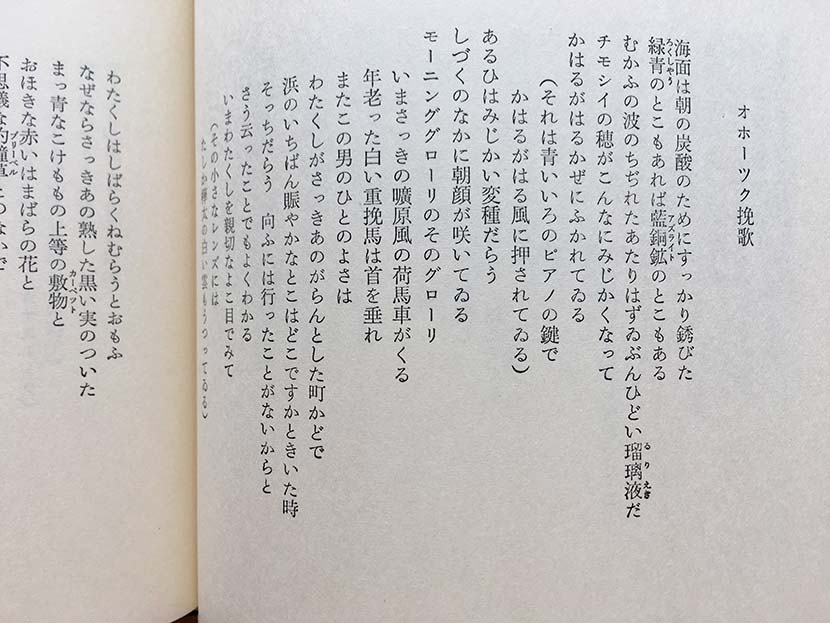 オホーツク挽歌
海面は朝の炭酸のためにすっかり銹びた
緑青のとこもあれば藍銅鉱のとこもある
ろくしやう
アズライト
むかふの波のちぢれたあたりはずゐぶんひどい瑠璃液だ
るりえき
チモシイの穂がこんなにみじかくなって
かはるがはるかぜにふかれてゐる
(それは青いいろのピアノの鍵で
かはるがはる風に押されてゐる)
あるひはみじかい変種だらう
しづくのなかに朝顔が咲いてゐる
モーニンググローリのそのグローリ
いまさっきの曠原風の荷馬車がくる
年老った白い重挽馬は首を垂れ
またこの男のひとのよさは
わたくしがさっきあのがらんとした町かどで
浜のいちばん賑やかなとこはどこですかときいた時
そっちだらう 向ふには行ったことがないからと
さう云ったことでもよくわかる
いまわたくしを親切なよこ目でみて
(その小さなレンズには
たしか樺太の白い雲もうつってゐる)
わたくしはしばらくねむらうとおもふ
なぜならさっきあの熟した黒い実のついた
まっ青なこけももの上等の敷物と
カーペット
おほきな赤いはまばらの花と
不思議な釣鐘草
ブリーベル